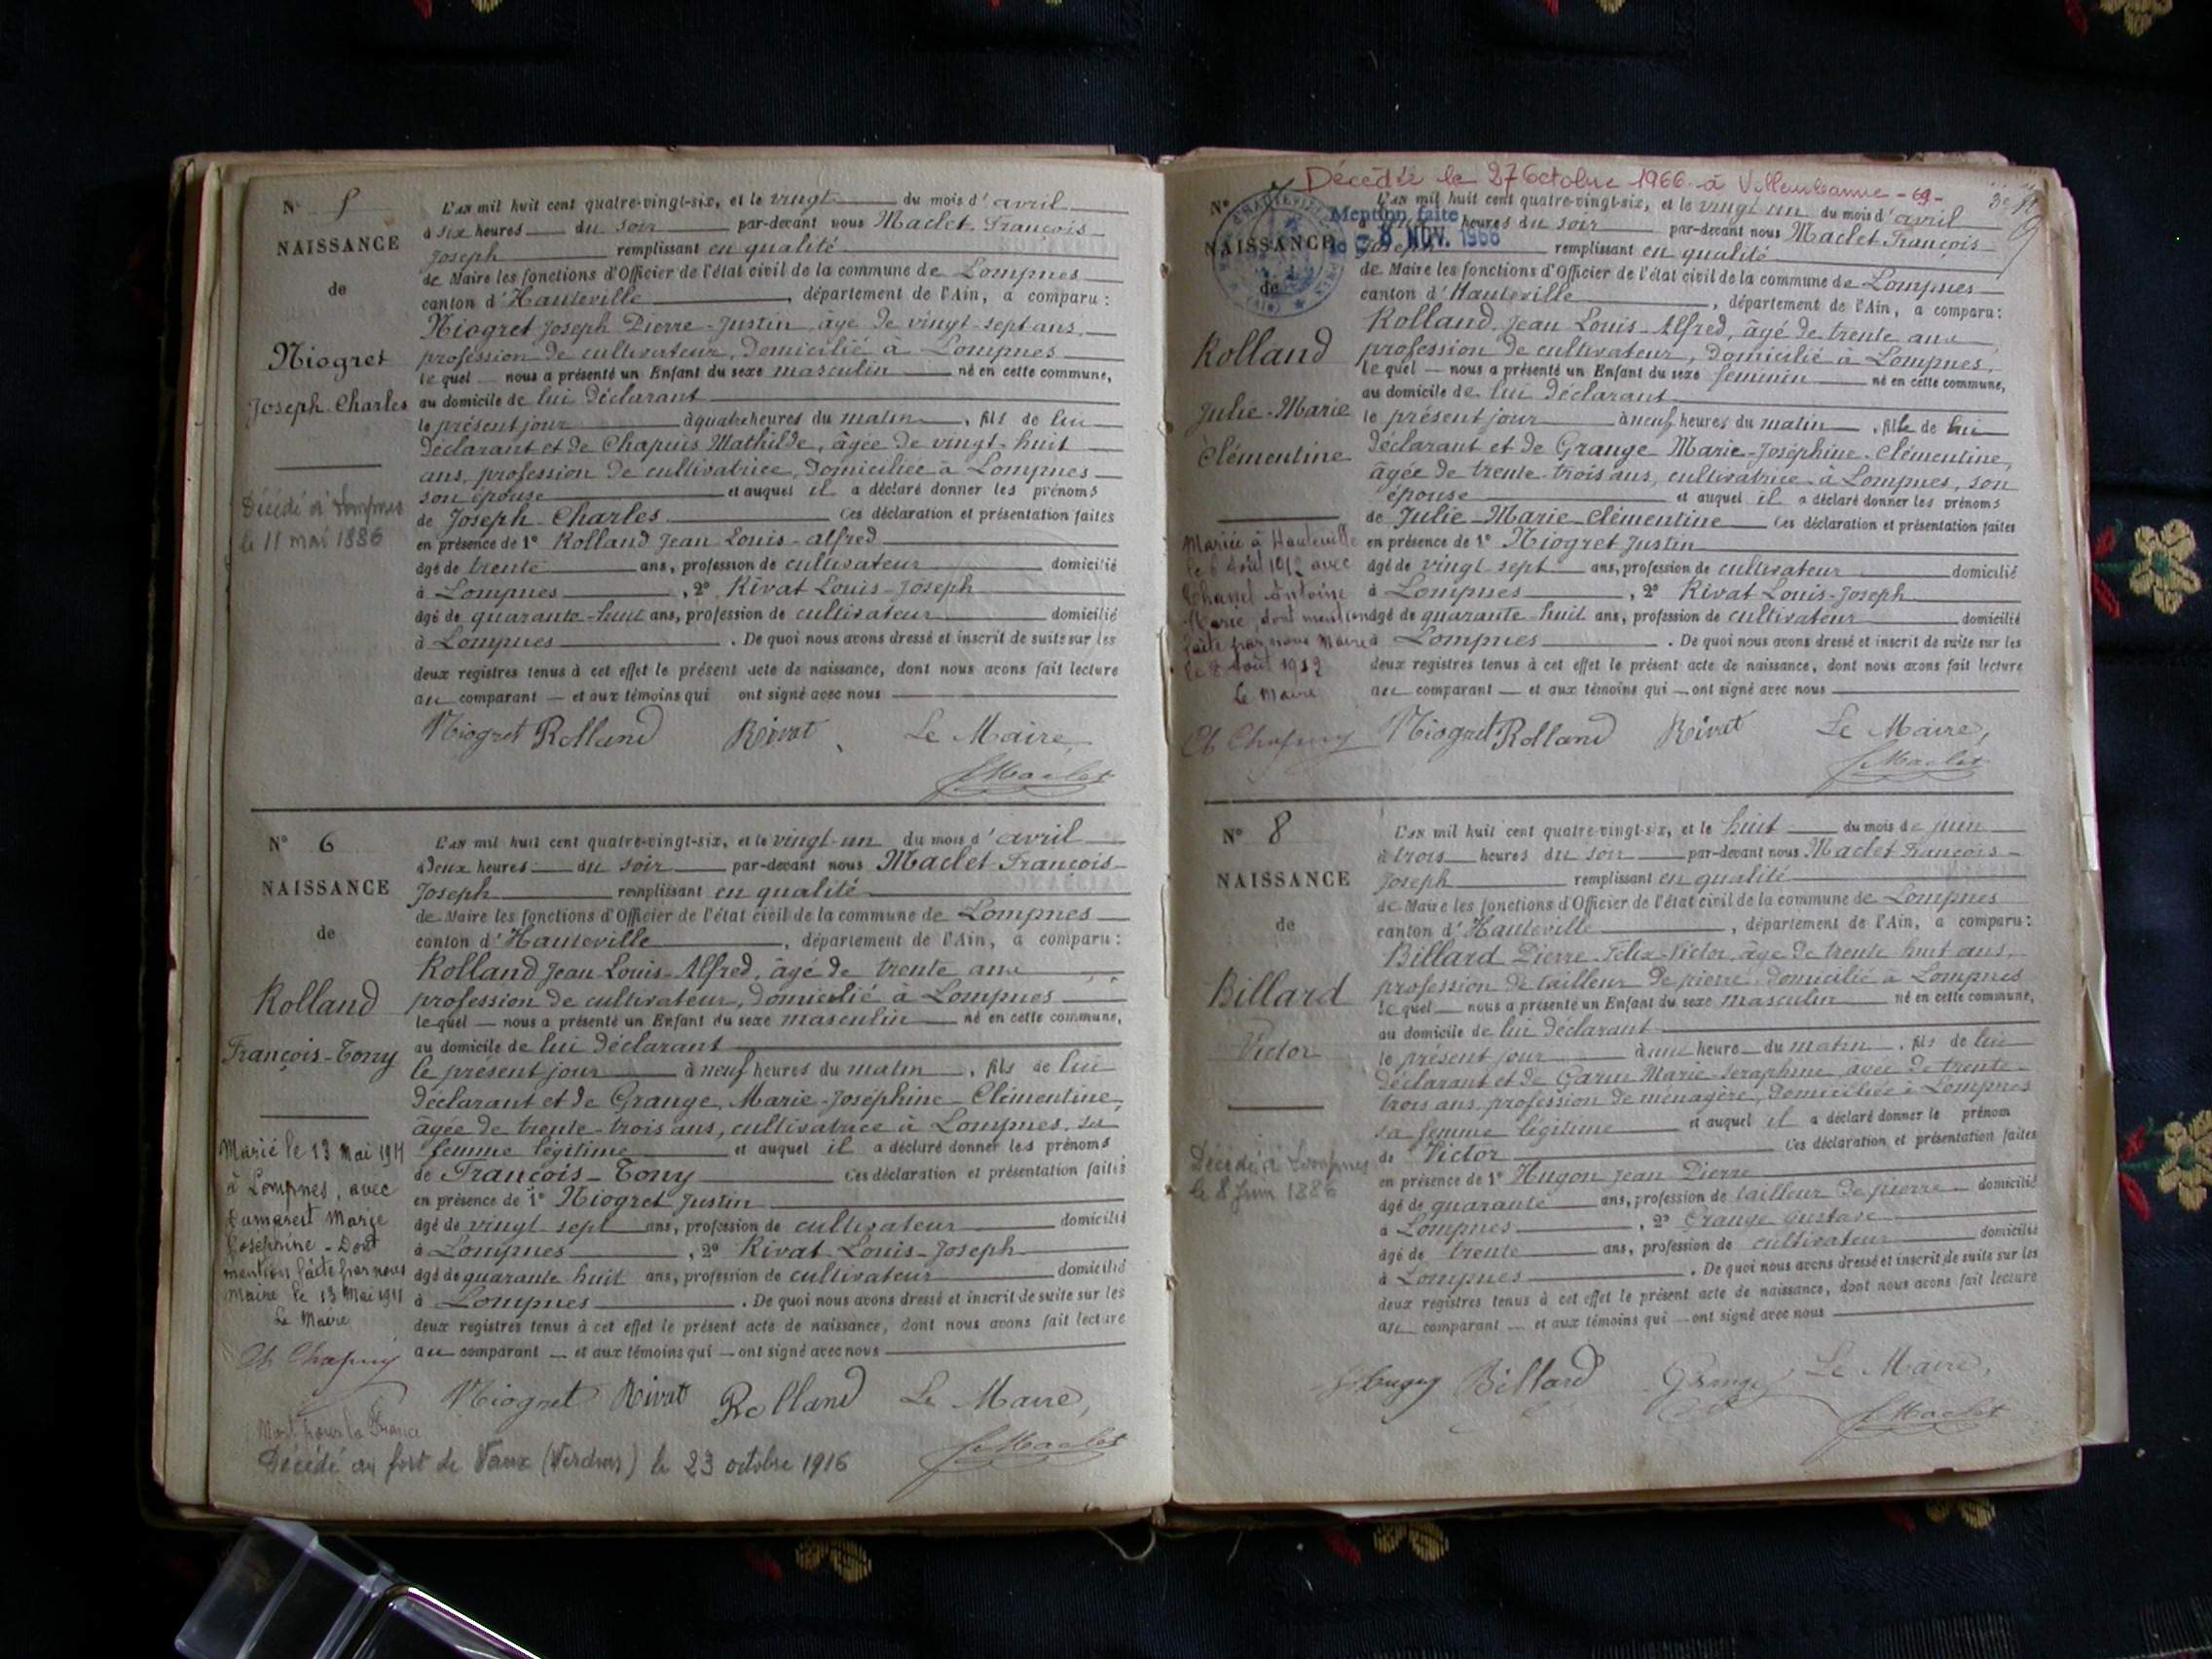 N° 5
NAISSANCE
de
Niogret
Joseph-Charles
Décédé à Lompnes
le 11 mai 1886
L'AN mil huit cent quatre-vingt-six, et le vingt du mois d'avril
à six heures du soir par-devant nous Maclet-François-
Joseph remplissant en qualité
de Maire les fonctions d'Officier de l'état civil de la commune de Lompnes
canton d'Hauteville, département de l'Ain, a comparu:
Niogret Joseph Pierre-Justin, âgé de vingt-sept ans,
profession de cultivateur, domicilié à Lompnes
lequel nous a présenté un Enfant du sexe masculin né en cette commune,
au domicile de lui déclarant
le présent jour à quatre heures du matin, fils de lui
déclarant et de Chapuis Mathilde, âgée de vingt-huit
ans, profession de cultivatrice, domiciliée à Lompnes
son épouse et auquel il a déclaré donner les prénoms
de Joseph-Charles Ces déclaration et présentation faites
en présence de 1° Rolland Jean Louis-Alfred
âgé de trente ans, profession de cultivateur domicilié
à Lompnes, 2° Rivat Louis-Joseph
âgé de quarante-huit ans, profession de cultivateur domicilié
à Lompnes. De quoi nous avons dressé et inscrit de suite sur les
deux registres tenus à cet effet le présent acte de naissance, dont nous avons fait lecture
au comparant et aux témoins qui ont signé avec nous
Niogret Rolland Rivat Le Maire,
Maclet
N° 6
NAISSANCE
de
Rolland
François-Tony
Marié le 13 Mai 1911
à Lompnes, avec
Dumarest Marie
Joséphine - Dont
mention faite par nous
Maire le 13 Mai 1911
Le Maire
Mort pour la France
L'AN mil huit cent quatre-vingt-six, et le vingt-un du mois d'avril
à deux heures du soir par-devant nous Maclet-François-
Joseph remplissant en qualité
de Maire les fonctions d'Officier de l'état civil de la commune de Lompnes
canton d'Hauteville, département de l'Ain, a comparu:
Rolland Jean-Louis-Alfred, âgé de trente ans
profession de cultivateur, domicilié à Lompnes
lequel nous a présenté un Enfant du sexe masculin né en cette commune,
au domicile de lui déclarant
le présent jour à neuf heures du matin, fils de lui
déclarant et de Grange, Marie-Joséphine-Clémentine,
âgée de trente-trois ans, cultivatrice à Lompnes, sa
femme légitime et auquel il a déclaré donner les prénoms
de François-Tony Ces déclaration et présentation faites
en présence de 1° Niogret Justin
âgé de vingt sept ans, profession de cultivateur domicilié
à Lompnes, 2° Rivat Louis-Joseph
âgé de quarante huit ans, profession de cultivateur domicilié
à Lompnes. De quoi nous avons dressé et inscrit de suite sur les
deux registres tenus à cet effet le présent acte de naissance, dont nous avons fait lecture
au comparant et aux témoins qui ont signé avec nous
Niogret Rivat Rolland Le Maire,
Maclet
Décédé au fort de Vaux (Verdun) le 23 octobre 1916
Décédée le 27 Octobre 1966 à Villeurbanne - 69 -
N°
Mention faite
8 NOV. 1966
NAISSANCE
de
Rolland
Julie-Marie
Clémentine
Mariée à Hauteville
le 6 Août 1912 avec
Chanel Antoine
Marie, dont mention
faite par nous Maire
le 8 Août 1912
Le Maire
L'AN mil huit cent quatre-vingt-six, et le vingt un du mois d'avril
heures du soir par-devant nous Maclet François-
Joseph remplissant en qualité
de Maire les fonctions d'Officier de l'état civil de la commune de Lompnes
canton d'Hauteville, département de l'Ain, a comparu:
Rolland, Jean Louis-Alfred, âgé de trente ans
profession de cultivateur, domicilié à Lompnes,
lequel nous a présenté un Enfant du sexe féminin né en cette commune,
au domicile de lui déclarant
le présent jour à neuf heures du matin, fille de lui
déclarant et de Grange Marie-Joséphine-Clémentine,
âgée de trente-trois ans, cultivatrice à Lompnes, son
épouse et auquel il a déclaré donner les prénoms
de Julie-Marie-Clémentine Ces déclaration et présentation faites
en présence de 1° Niogret Justin
âgé de vingt sept ans, profession de cultivateur domicilié
à Lompnes, 2° Rivat Louis-Joseph
âgé de quarante-huit ans, profession de cultivateur domicilié
à Lompnes. De quoi nous avons dressé et inscrit de suite sur les
deux registres tenus à cet effet le présent acte de naissance, dont nous avons fait lecture
au comparant et aux témoins qui ont signé avec nous
Niogret Rolland Rivat Le Maire,
Maclet
N° 8
NAISSANCE
de
Billard
Victor
Décédé à Lompnes
le 8 Juin 1886
L'AN mil huit cent quatre-vingt-six, et le huit du mois de juin
à trois heures du soir par-devant nous Maclet François-
Joseph remplissant en qualité
de Maire les fonctions d'Officier de l'état civil de la commune de Lompnes
canton d'Hauteville, département de l'Ain, a comparu:
Billard Pierre-Félix-Victor, âgé de trente huit ans,
profession de tailleur de pierre, domicilié à Lompnes
lequel nous a présenté un Enfant du sexe masculin né en cette commune,
au domicile de lui déclarant
le présent jour à une heure du matin, fils de lui
déclarant et de Marie-Séraphine, âgée de trente-
trois ans, profession de ménagère, domiciliée à Lompnes
sa femme légitime et auquel il a déclaré donner le prénom
de Victor Ces déclaration et présentation faites
en présence de 1° Hugon Jean Pierre
âgé de quarante ans, profession de tailleur de pierre domicilié
à Lompnes, 2° Grange Gustave
âgé de trente ans, profession de cultivateur domicilié
à Lompnes. De quoi nous avons dressé et inscrit de suite sur les
deux registres tenus à cet effet le présent acte de naissance, dont nous avons fait lecture
au comparant et aux témoins qui ont signé avec nous
Billard Grange Le Maire,
Maclet